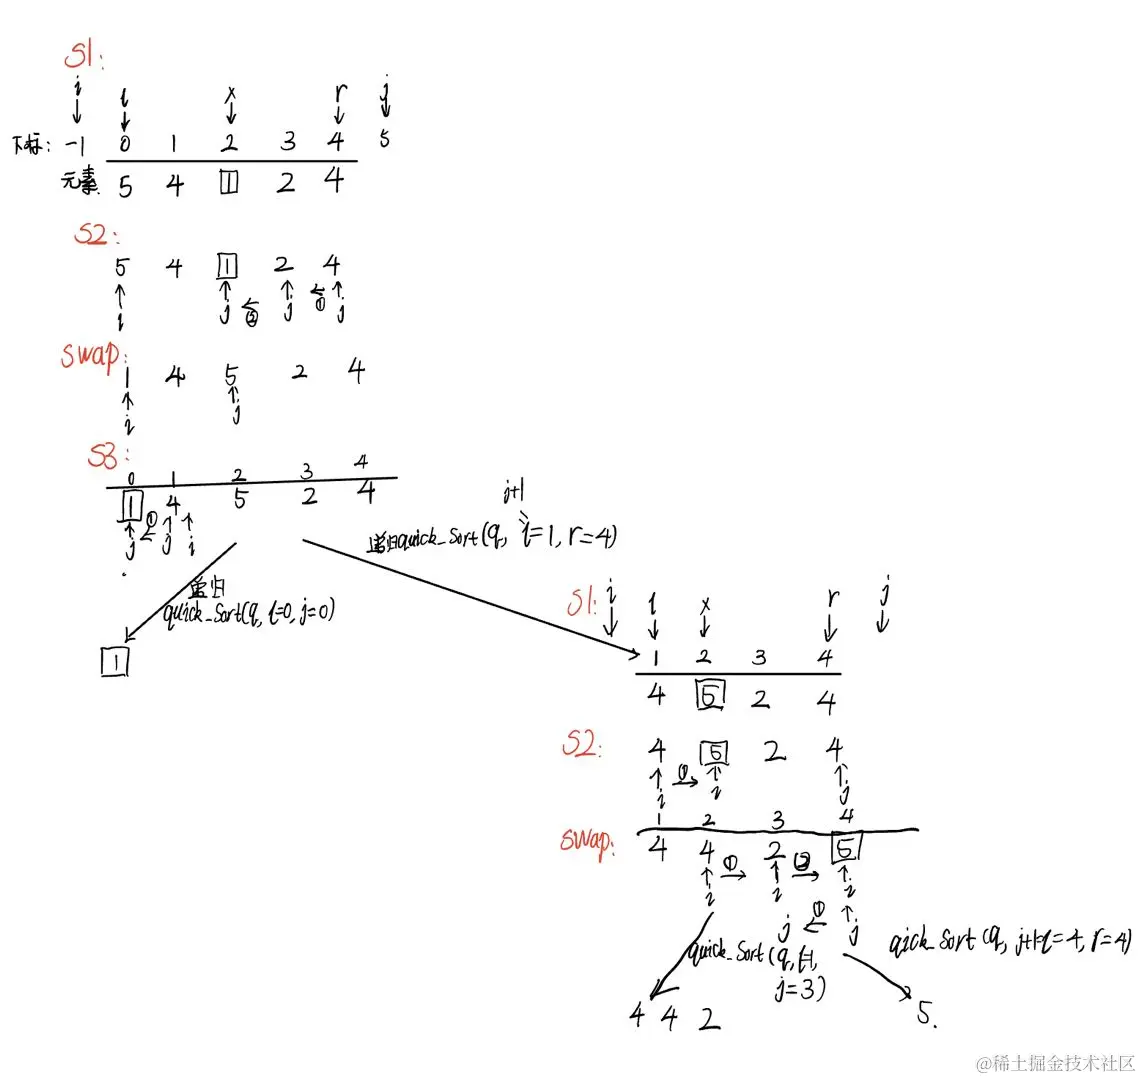 S1:
i l x r j
下标: -1 0 1 2 3 4 5
元素 5 4 1 2 4
S2:
5 4 1 2 4
② ①
i j j j
swap:
1 4 5 2 4
i j
S3:
0 1 2 3 4
1 4 5 2 4
①
j j i
j+1
递归quick_sort(q, l=1, r=4)
递归
quick_sort(q, l=0, j=0)
1
S1: i l x r j
1 2 3 4
4 5 2 4
S2: 4 5 2 4
①
i i j
1 2 3 4
swap: 4 4 2 5
① ②
i i i
①
j j
quick_sort(q, l=1,
j=3)
qick_sort(q, j+1=l=4, r=4)
4 4 2
5.
@稀土掘金技术社区